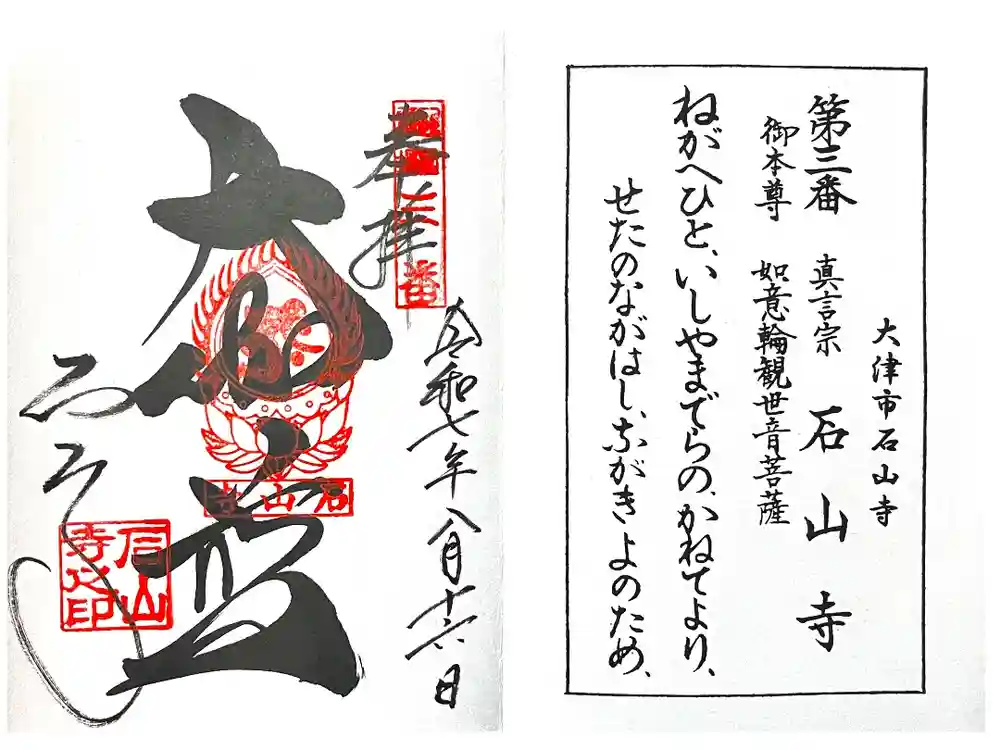 大津市石山寺
第三番 真言宗 石山寺
御本尊 如意輪観世音菩薩
ねがへひと、いしやまでらの、かねてより、
せたのながはし、ながきよのため、
奉拝
令和七年八月十六日
石山寺
石山寺之印